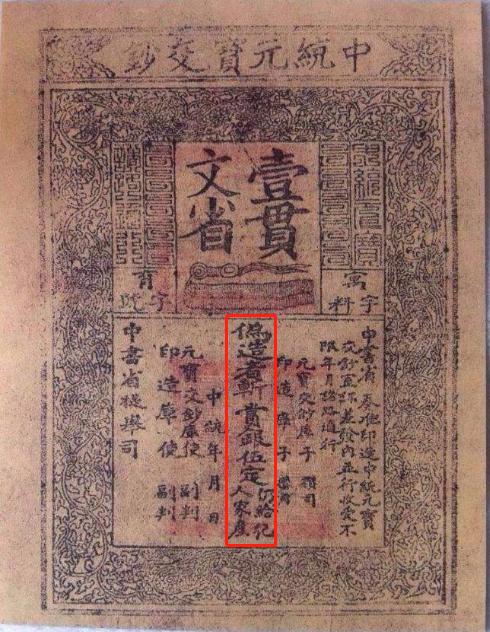 中統元寶交鈔
壹貫
文省
中統元寶
諸路通行
字料
字號
中書省奏准印造中統元寶
交鈔宣課差發內並行收受不
限年月諸路通行
元寶交鈔庫子 攢司
印造庫子 攢司
僞造者斬賞銀伍定
仍給犯
人家產
中統年月日
元寶交鈔庫使 副判
印造庫使 副判
中書省提舉司